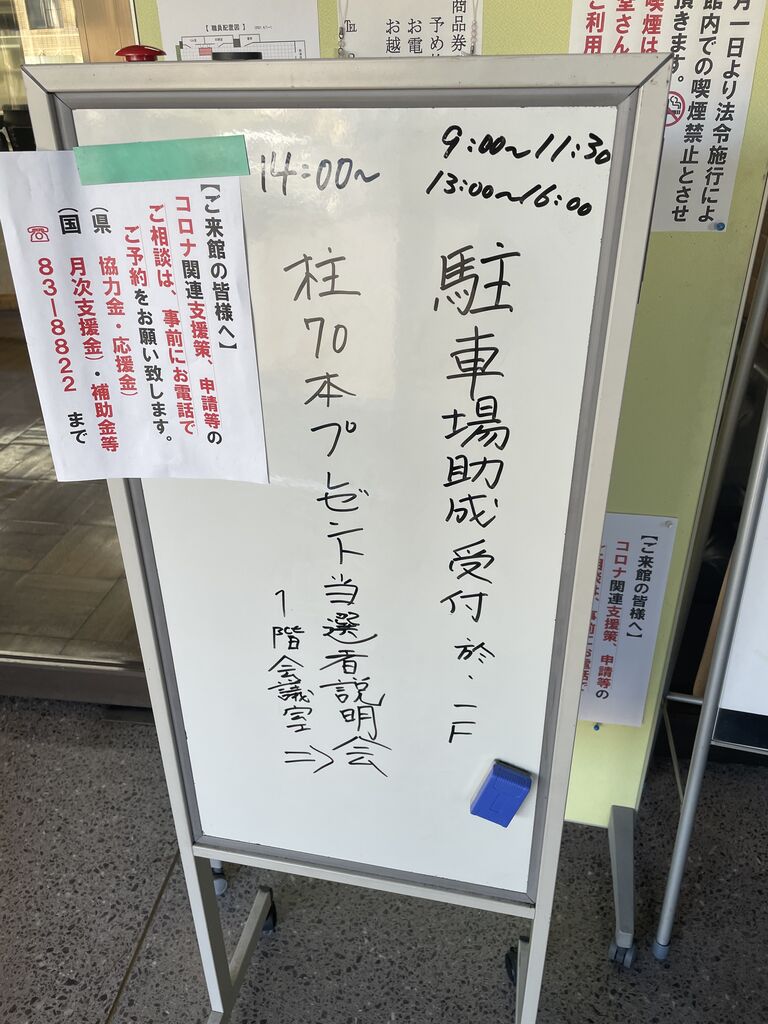 【職員配置図】
商品券
予め
お電
お越
℡
月一日より法令施行によ
館内での喫煙禁止とさせ
頂きます。
喫煙は
堂さん
ご利用
9:00~11:30
13:00~16:00
駐車場助成受付 於.一F
14:00~
柱70本プレゼント当選者説明会
1階会議室 ⇒
【ご来館の皆様へ】
コロナ関連支援策、申請等の
ご相談は、事前にお電話で
ご予約をお願い致します。
(県 協力金・応援金)
(国 月次支援金)・補助金等
☎ 83-8822 まで
【ご来館の皆様へ】
コロナ関連支援策、申請等の
ご相談は、事前にお電話で